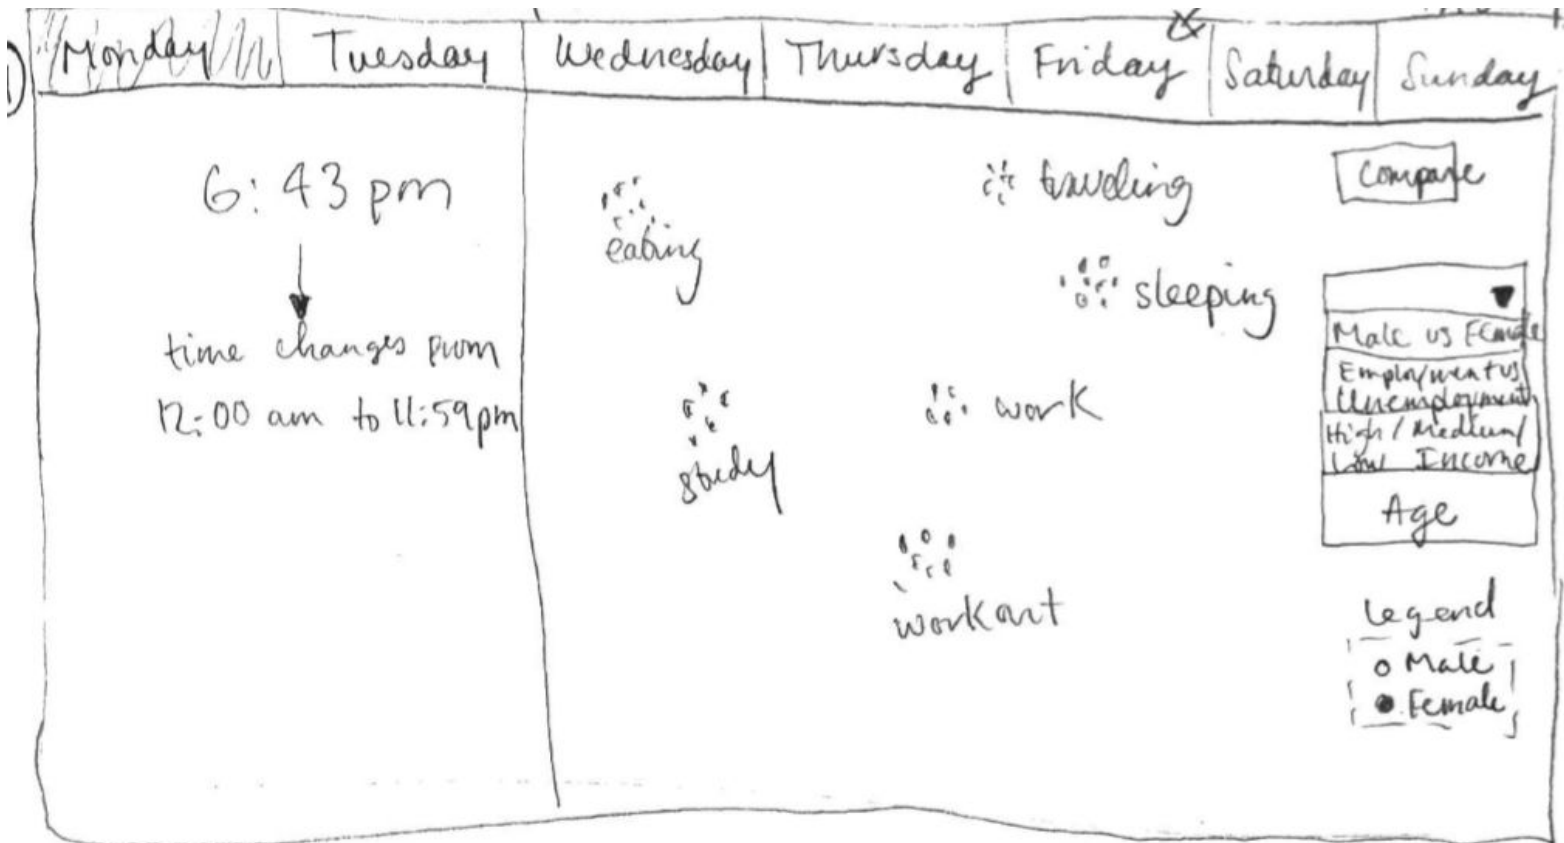 Monday Tuesday Wednesday Thursday Friday Saturday Sunday
6:43 pm
time changes from
12:00 am to 11:59pm
eating
traveling
sleeping
study
work
workout
Compare
Male vs Female
Employment vs
Unemployment
High / Medium/
Low Income
Age
Legend
Male
Female